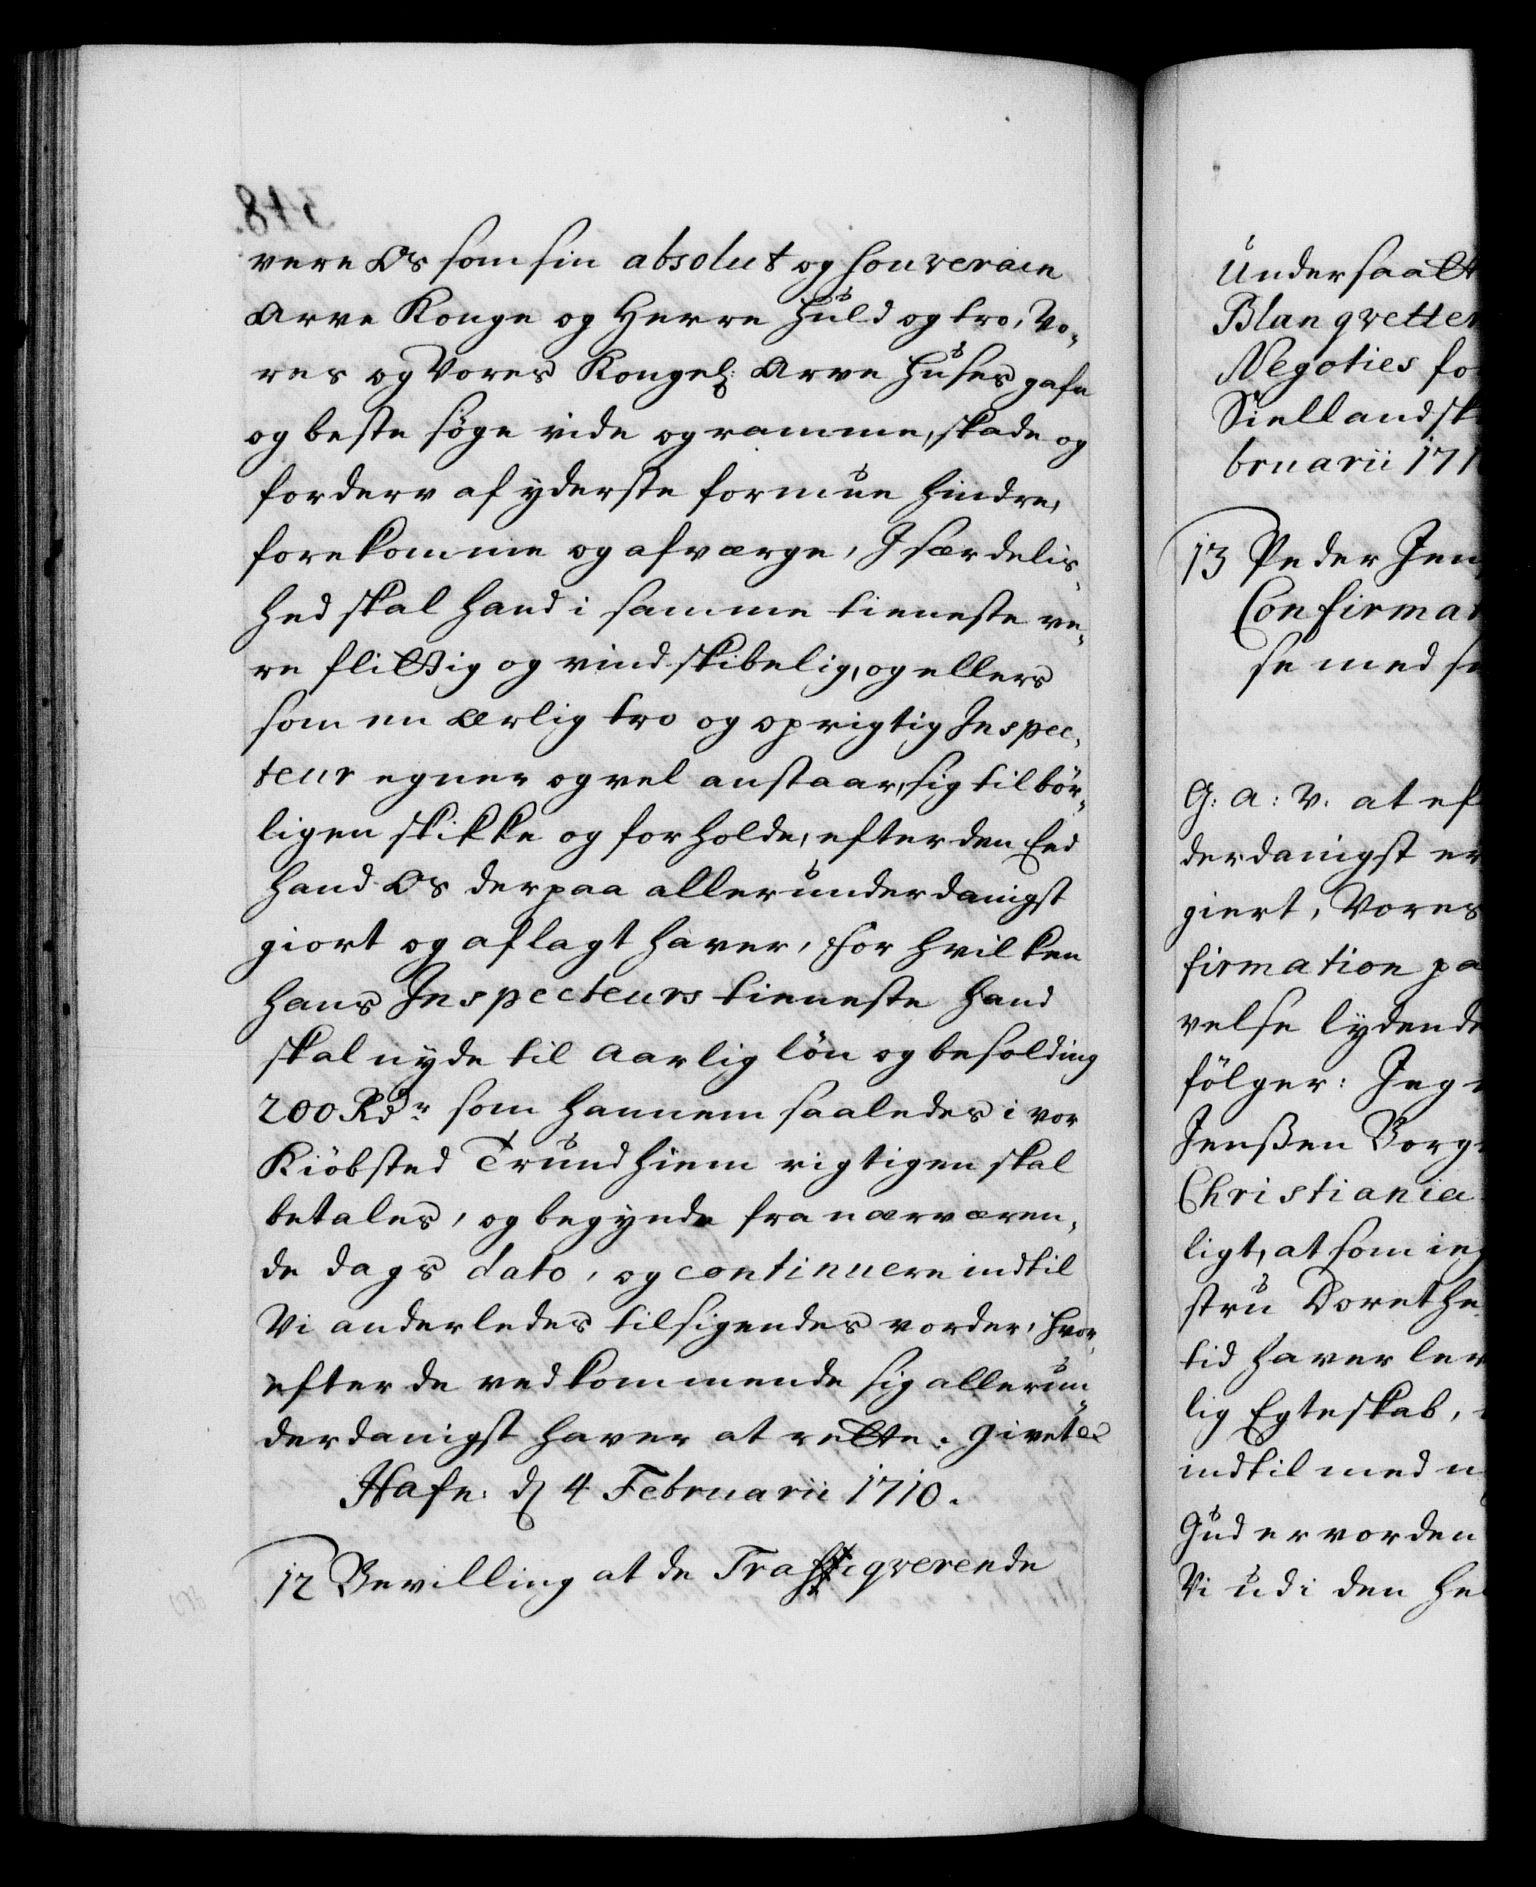 vere Os som sin absolut og souverain
Arve Konge og Herre huld og tro, Vo-
res og Vores Kongel: Arve Huses gafn
og beste söge vide og ramme, skade og
forderv af yderste formue hindre,
forekomme og afværge, Isærdelis-
hed skal hand i samme tieneste ve-
re flittig og vindskibelig, og ellers
som en ærlig tro og oprigtig Inspec-
teur egner og vel anstaar, sig tilbör-
ligen skikke og forholde, efter den Eed
hand Os derpaa allerunderdanigst
giort og aflagt haver, for hvilken
hans Inspecteurs tieneste hand
skal nyde til aarlig lön og besolding
200 Rdr som hannem saaledes i vor
Kiöbsted Trundhiem rigtigen skal
betales, og begynde fra nærværen-
de dags dato, og continuere indtil
Vi anderledes tilsigendes vorder, hvor-
efter de vedkommende sig allerun-
derdanigst haver at rette. Givet &c
Hafn: d 4 Februarii 1710.
12 Bevilling at de Trafficqverende
Undersaatt
Blanqvetter
Negoties fo
Siellandsk
bruarii 171
13 Peder Jen
Confirmat
se med s
G: A: V: at ef
derdanigst er
giert, Vores
firmation pa
velse lydende
fölger: Jeg
Jenßen Borg
Christiania
ligt, at som ieg
stru Dorethe
tid haver lev
lig Egteskab,
indtil med n
Gud er vorden
Vi udi den he